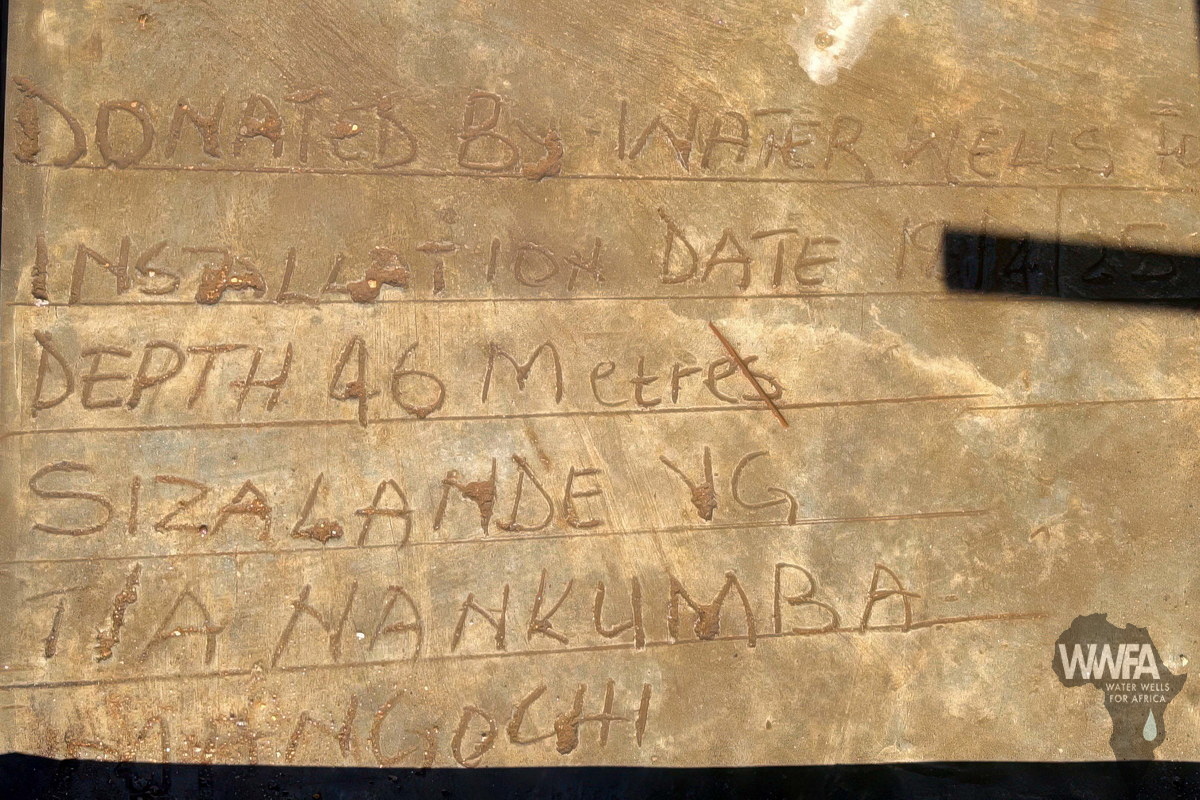 DONATED By WATER WELLS
INSTALLATION DATE
DEPTH 46 Metres
SIZALANDE VG
T/A NANKUMBA
MANGOCHI
WWFA
WATER WELLS
FOR AFRICA